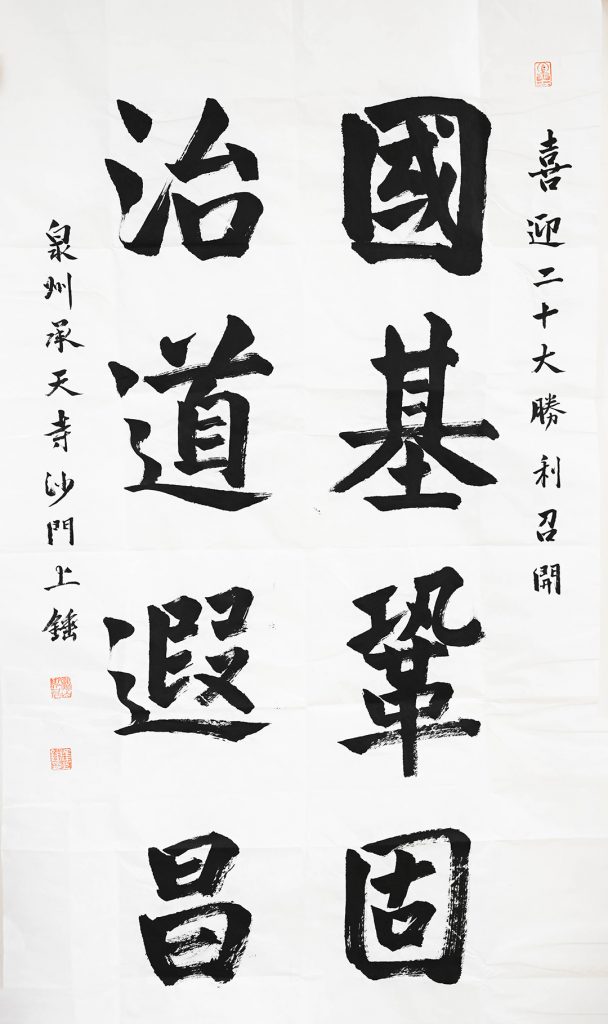 喜迎二十大勝利召開
國基鞏固
治道遐昌
泉州承天寺沙門上錘